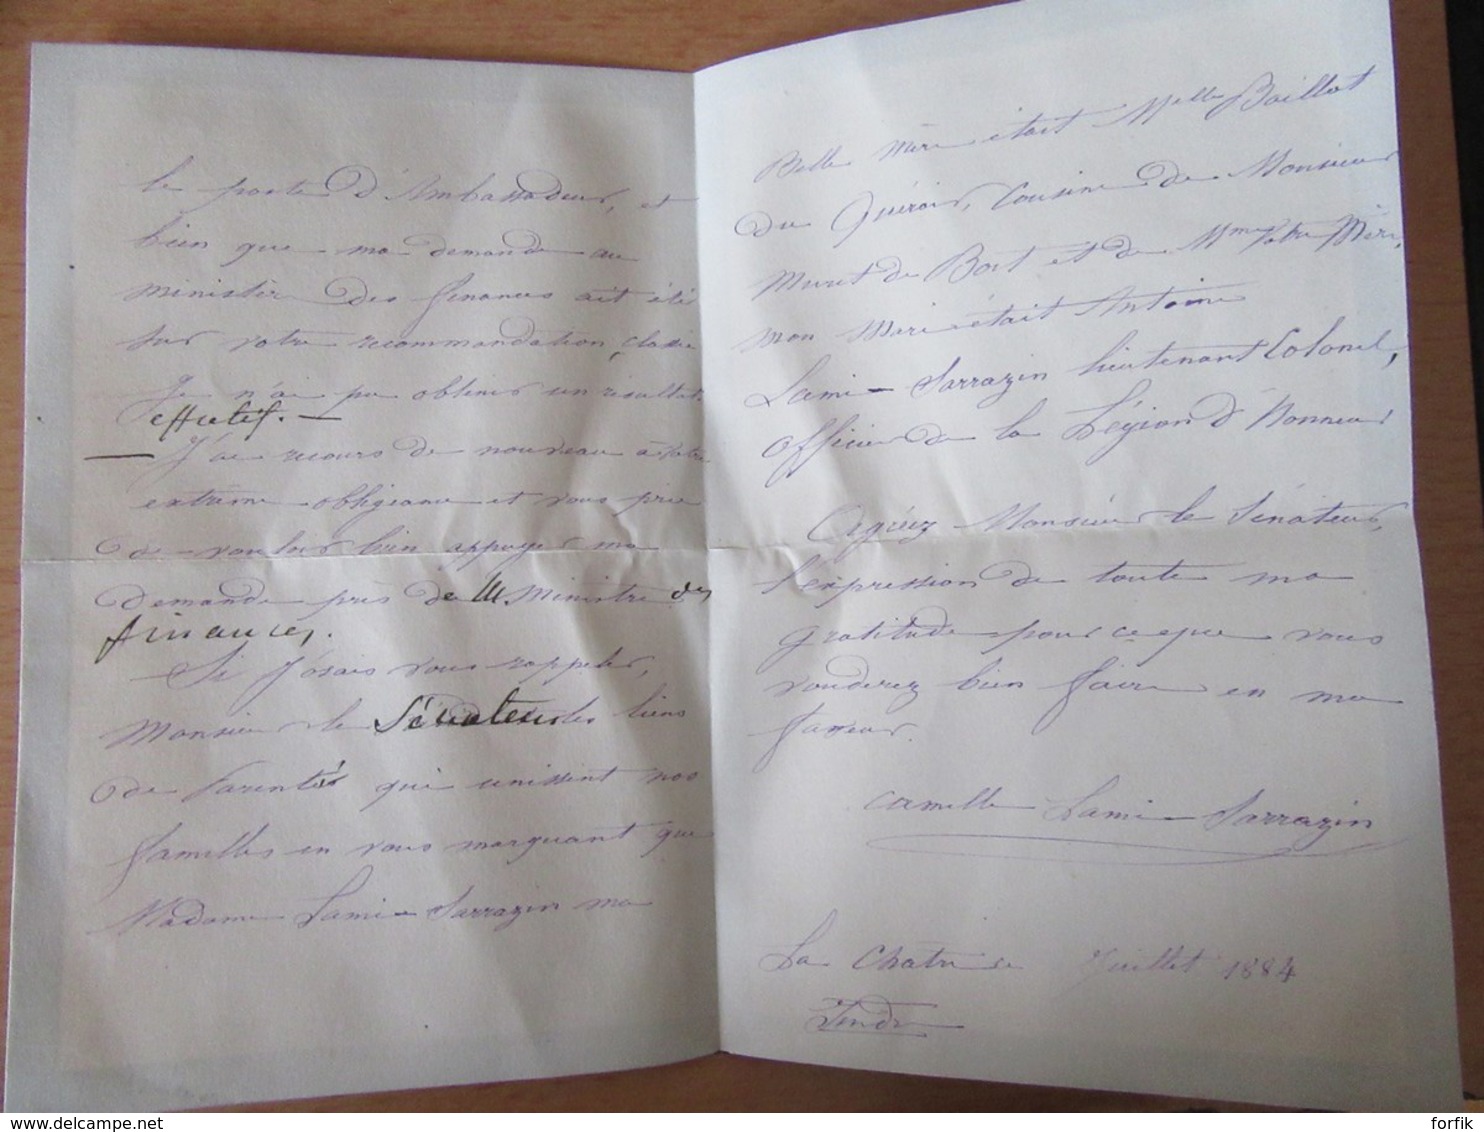 le poste d'Ambassadeur, et
bien que ma demande au
ministère des finances ait été
sur votre recommandation, classée
Je n'ai pu obtenir un résultat
effectif. —
— J'ai recours de nouveau à votre
extrême obligeance et vous prie
de vouloir bien appuyer ma
demande près de M. Ministre des
finances,.
Si j'osais vous rappeler,
Monsieur le Sénateur les liens
de Parentés qui unissent nos
familles en vous marquant que
Madame Lami-Sarrazin ma
Belle Mère était Melle Baillot
du Quéroir, Cousine de Monsieur
Muret de Bort et de Mme Votre Mère,
mon Mari était Antoine
Lami-Sarrazin lieutenant Colonel,
officier de la Légion d'Honneur
Agréez Monsieur le Sénateur,
l'expression de toute ma
gratitude pour ce que vous
voudrez bien faire en ma
faveur.
Camille Lami-Sarrazin
La Chatre Juillet 1884
Indre
delcampe.net
forfik